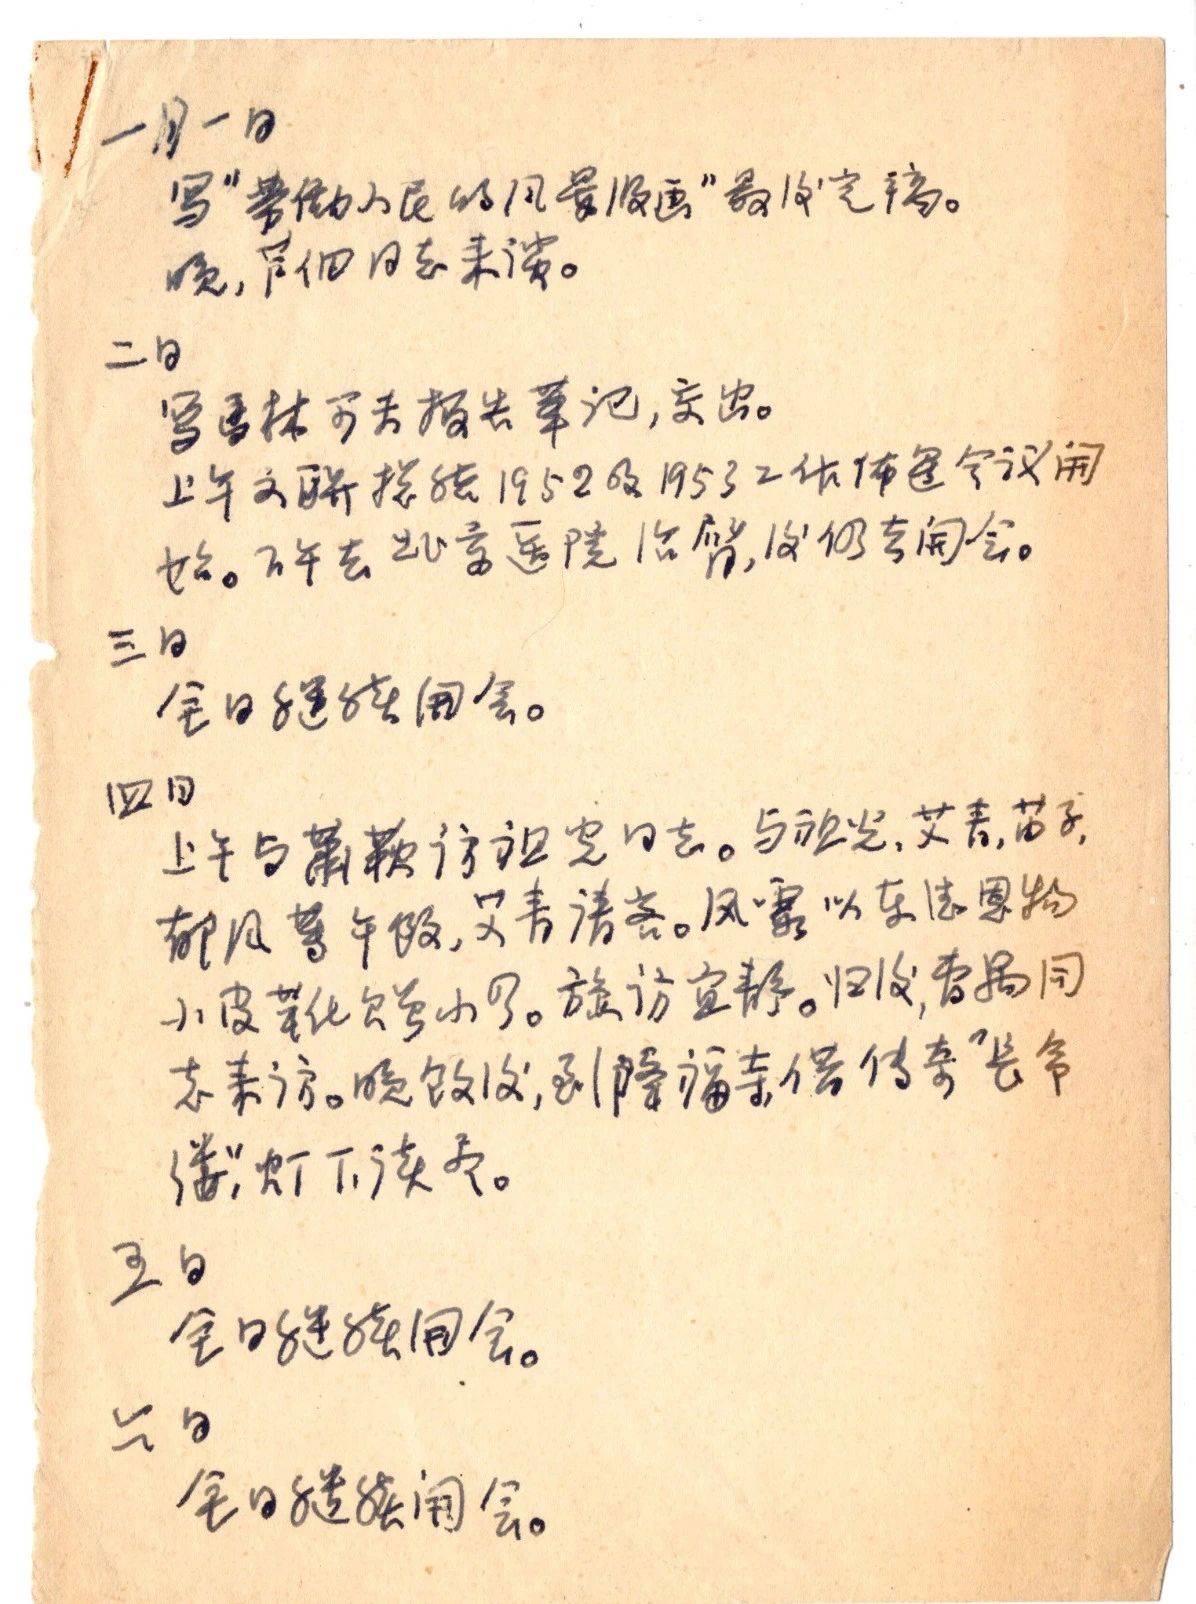 一月一日
写"劳働人民的风景版画"最后定稿。
晚,芦甸同志来谈。
二日
写马林可夫报告笔记,交出。
上午文联总结1952及1953工作佈置会议开
始。下午去北京医院治臂,后仍去开会。
三日
全日继续开会。
四日
上午与萧赛访祖光同志。与祖光,艾青,苗子,
郁风等午饭,艾青请客。凤霞以车德恩物
小皮靴赠小の。旋访宜静。归后,曹禺同
志来访。晚饭后,到隆福寺,借传奇"长命
缕",灯下读尽。
五日
全日继续开会。
六日
全日继续开会。